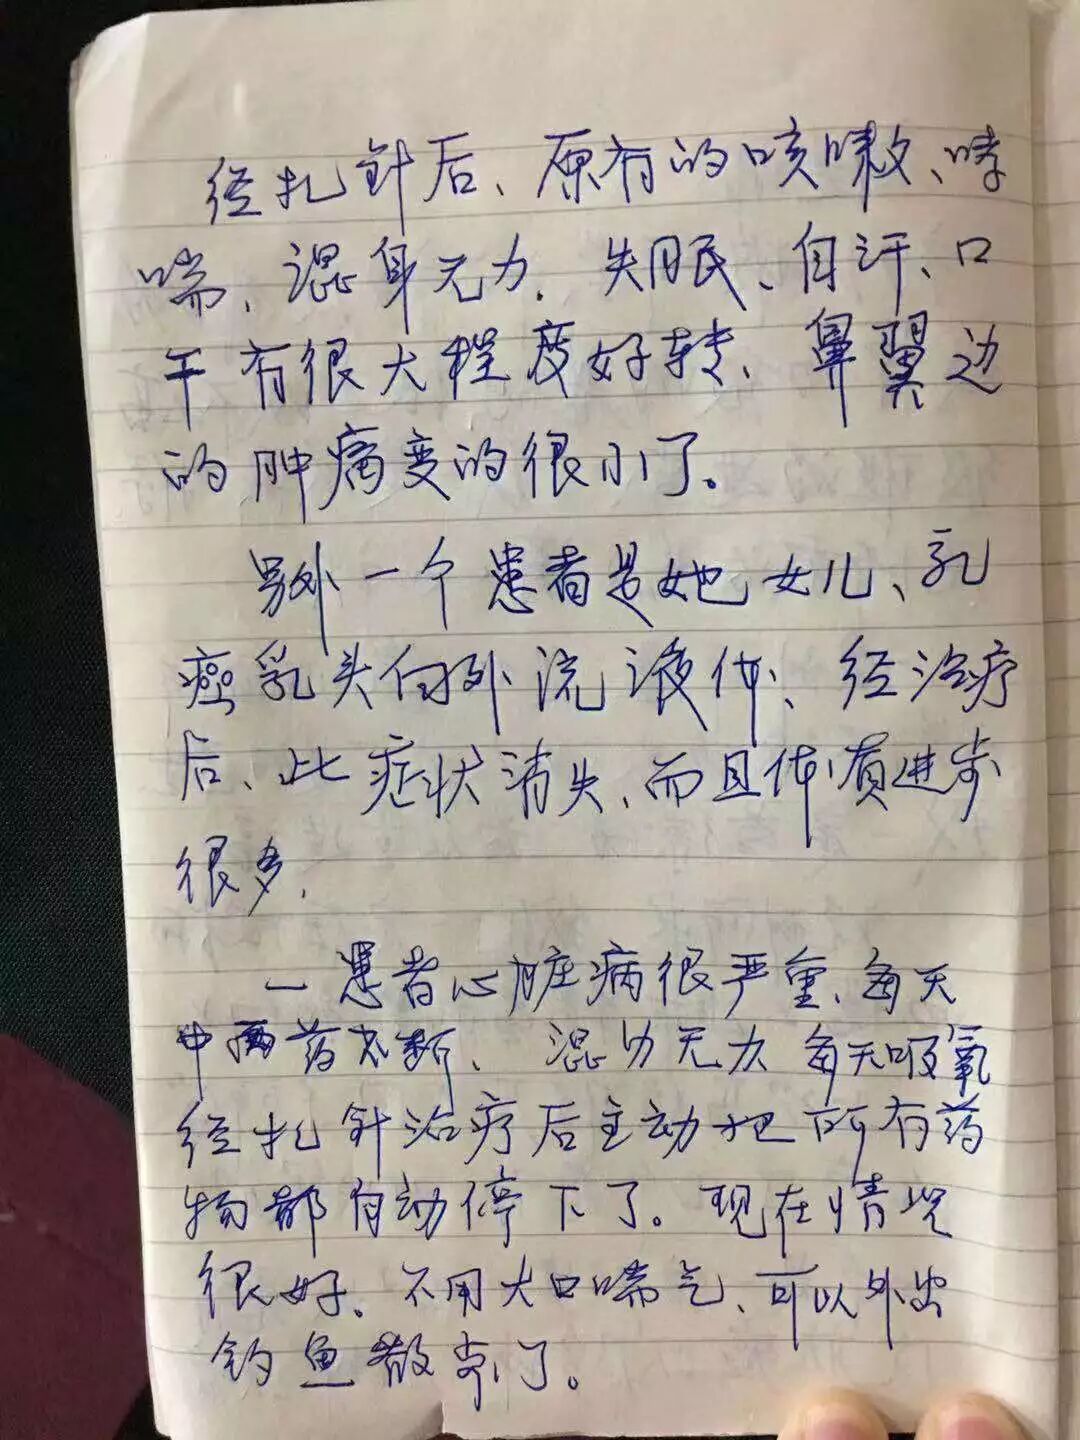 经扎针后、原有的咳嗽、哮
喘、混身无力、失眠、自汗、口
干有很大程度好转、鼻翼边
的肿瘤变的很小了。
另外一个患者是她女儿、乳
癌乳头向外流液体、经治疗
后、此症状消失、而且体质进步
很多.
一患者心脏病很严重、每天
中西药不断、混身无力每天吸氧
经扎针治疗后主动把所有药
物都自动停下了。现在情况
很好、不用大口喘气、可以外出
钓鱼散步了。